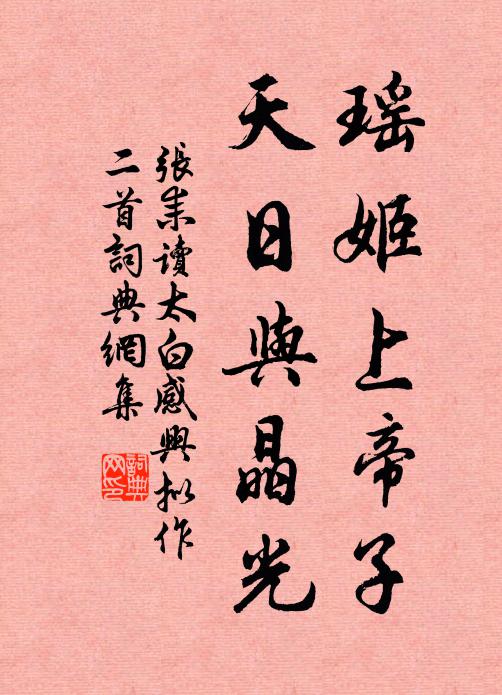 瑶姬上帝子
天日與晶光
張耒讀太白感興擬作
二首詞典網集
詞典網印